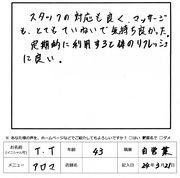 スタッフの対応も良く、マッサージ
も、とてもていねいで気持ち良かった。
定期的に利用すると体のリフレッシュ
に良い。
※ あなた様の声を、ホームページなどでご紹介してもよろしいですか? □はい ☑匿名で □ダメ
お名前 (イニシャル可) T.T 年齢 43 職業 自営業
メニュー アロマ 店舗名 記入日 29年3月21日